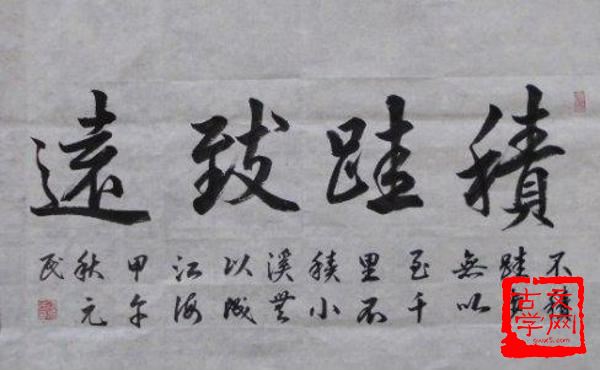 積跬致遠
不積
跬步
無以
至千
里不
積小
溪無
以成
江海
甲午
秋元
民
古文
学网